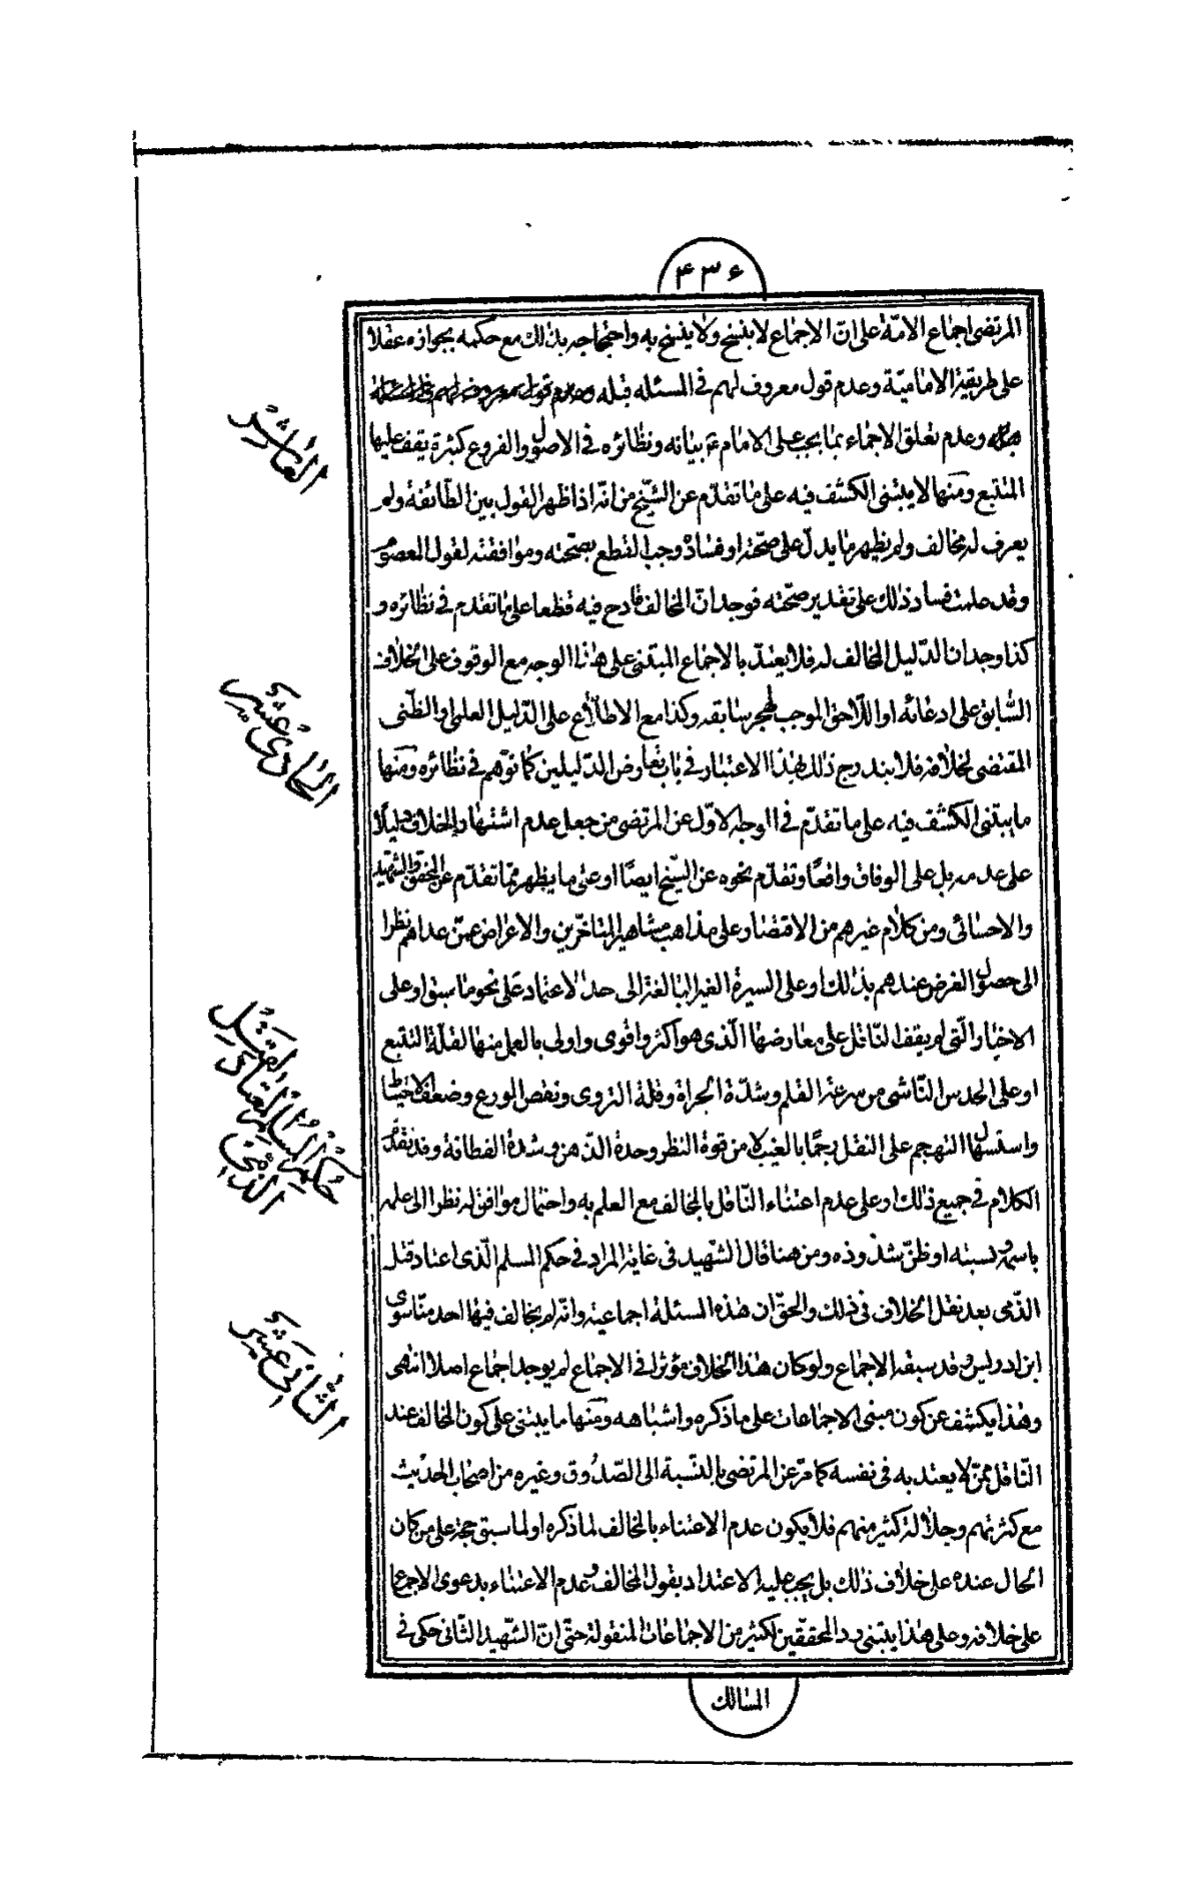 ۴۳۶
المرتضى اجماع الامّة على انّ الاجماع لا ينسخ ولا ينسخ به واحتجاجه بذلك مع حكمه بجوازه عقلا
على طريقة الاماميّة وعدم قول معروف لهم في المسئله قبله
وعدم تعلق الاجماع بما يجب على الامام ع بيانه ونظائره في الاصول والفروع كثيرة يقف عليها
المتتبع ومنها لا يبتنى الكشف فيه على ما تقدّم عن الشّيخ من انّه اذا ظهر القول بين الطّائفة ولم
يعرف له مخالف ولم يظهر ما يدلّ على صحّته او فساده وجب القطع بصحّته وموافقته لقول المعصوم
وقد علمت فساد ذلك على تقدير صحّته فوجدانّ المخالف قادح فيه قطعا على ما تقدم في نظائره و
كذا وجدان الدّليل المخالف له فلا يعتدّ بالاجماع المبتنى على هذا الوجه مع الوقوف على الخلاف
السّابق على ادعائه او اللّاحق الموجب لهجر سابقه وكذا مع الاطلاع على الدّليل العلمي او الظّني
المقتضى لخلافه فلا يندرج ذلك بهذا الاعتبار في باب تعارض الدّليلين كما توهّم في نظائره ومنها
ما يبتنى الكشف فيه على ما تقدّم في الوجه الاوّل عن المرتضى من جعل عدم اشتهار الخلاف دليلا
على عدمه بل على الوفاق واقعًا وتقدّم نحوه عن الشّيخ ايضًا او على ما يظهر ممّا تقدّم عن المحقق والشّهيد
والاحسائى ومن كلام غيرهم من الاقتصار على مذاهب مشاهير المتاخّرين والاعراض عمّن عداهم نظرا
الى حصول الغرض عندهم بذلك او على السيرة الغير البالغة الى حدّ الاعتماد على نحو ما سبق او على
الاخبار الّتى لم يقف النّاقل على معارضها الّذى هو اكثر واقوى واولى بالعمل منها لقلّة التتبع
او على الحدس النّاشى من سرعة القلم وشدّة الجراة وقلّة التروى ونقص الورع وضعف الاحتياط
واستسهال التهجم على النقل رجمًا بالغيب لا من قوة النظر وحدة الذّهن وشدة الفطانة وقد تقدّم
الكلام في جميع ذلك او على عدم اعتناء النّاقل بالمخالف مع العلم به واحتمال موافق له نظرا الى علمه
باسمه ونسبته او ظنّ شذوذه ومن هنا قال الشّهيد في غاية المراد في حكم المسلم الّذى اعتاد قتل
الذّمى بعد نقل الخلاف في ذلك والحقّ ان هذه المسئلة اجماعية وانّه لم يخالف فيها احد منّا سوى
ابن ادريس وقد سبقه الاجماع ولو كان هذا الخلاف مؤثرا في الاجماع لم يوجد اجماع اصلا انتهى
وهذا يكشف عن كون مبنى الاجماعات على ما ذكره واشباهه ومنها ما يبتنى على كون المخالف عند
النّاقل ممّن لا يعتد به في نفسه كما مرّ عن المرتضى بالنّسبة الى الصّدوق وغيره من اصحاب الحديث
مع كثرتهم وجلالة كثير منهم فلا يكون عدم الاعتناء بالمخالف لما ذكره او لما سبق حجة على من كان
الحال عنده على خلاف ذلك بل يجب عليه الاعتداد بقول المخالف وعدم الاعتناء بدعوى الاجماع
على خلافه وعلى هذا يبتنى ردّ المحققين لكثير من الاجماعات المنقولة حتّى انّ الشّهيد الثّانى حكى في
المسالك
العاشر
الحادي عشر
حكم المسلم المعتاد لقتل
الذّمى
الثّاني عشر